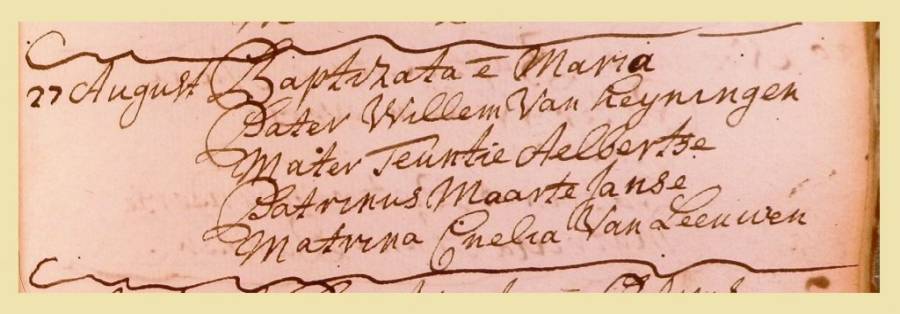 27 August Baptizata ē Maria
Pater Willem Van Keyningen
Mater Teuntie Aelbertse
Patrinus Maarte Janse
Matrina Cnelia Van Leeuwen